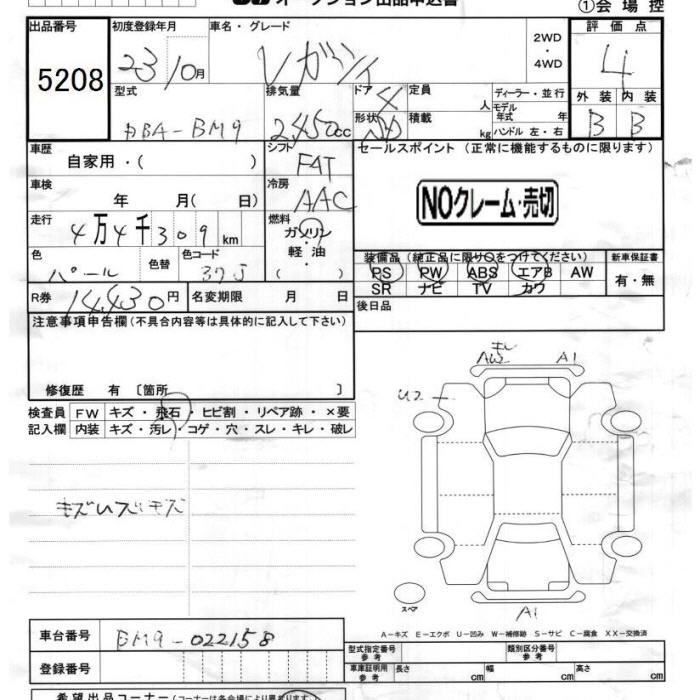 オークション出品申込書
①会場控
出品番号
5208
初度登録年月
23 10月
車名・グレード
Vガシイ
2WD
・
4WD
評価点
4
外装 内装
B B
型式
DBA-BM9
排気量
2450cc
ドア 4 定員 人
形状 SD 積載 kg
ディーラー・並行
モデル年式 年
ハンドル 左・右
車歴
自家用・( )
シフト
FAT
冷房
AAC
セールスポイント(正常に機能するものに限ります)
NOクレーム・売切
車検
年 月( 日)
走行
4万4千309km
燃料
ガソリン
・
軽油
・
( )
色
パール
色替
色コード
37J
装備品(純正品に限り○をつけてください)
PS PW ABS エアB AW
SR ナビ TV カワ
新車保証書
有・無
R券 14,430円
名変期限 月 日
後日品
注意事項申告欄(不具合内容等は具体的に記入して下さい)
修復歴 有 [箇所 ]
検査員
記入欄
FW キズ・飛石・ヒビ割・リペア跡・×要
内装 キズ・汚レ・コゲ・穴・スレ・キレ・破レ
A1
U2
A1
スペア
A-キズ E-エクボ U-凹み W-補修跡 S-サビ C-腐食 XX-交換済
車台番号
BM9-022158
登録番号
型式指定番号
参考
類別区分番号
参考
車庫証明用
参考
長さ cm 幅 cm 高さ cm
希望出品コーナー(コーナーは各会場により異なります)